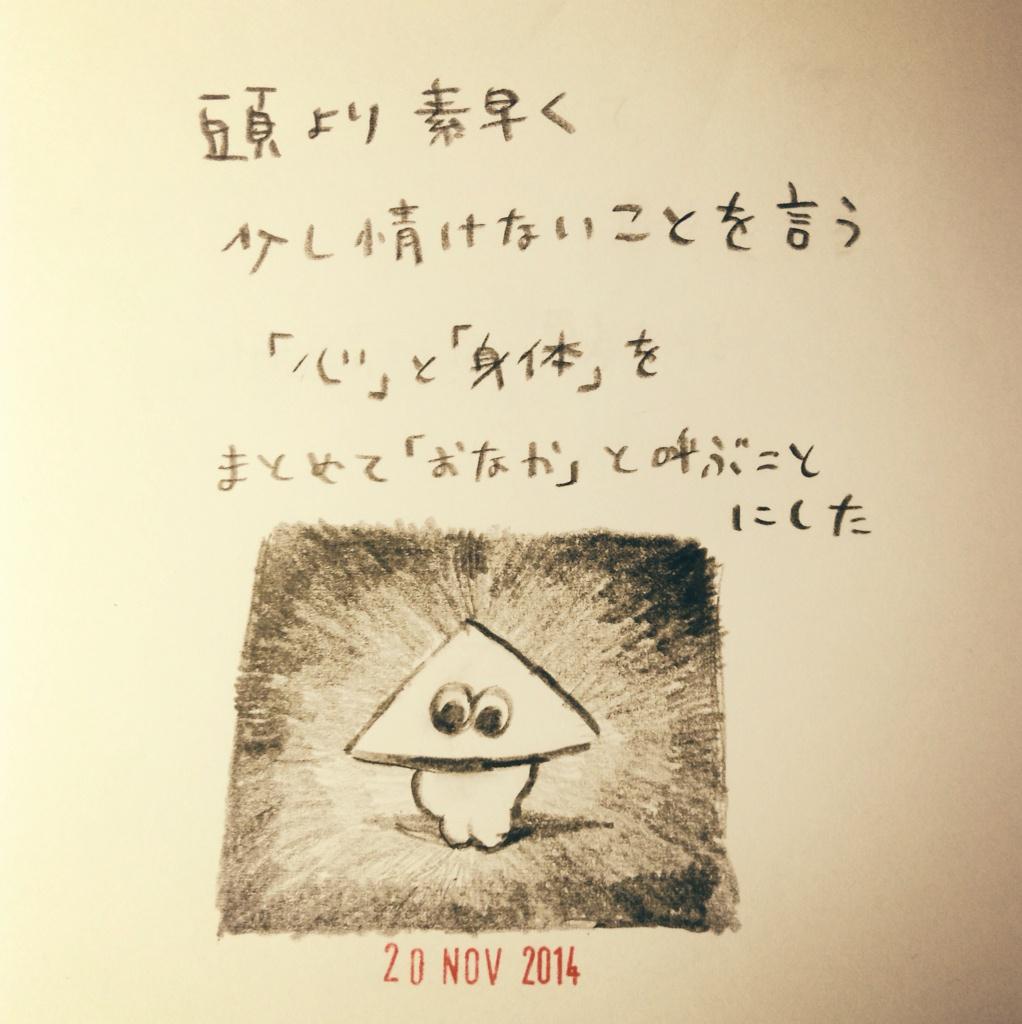 頭より素早く
少し情けないことを言う
「心」と「身体」を
まとめて「おなか」と呼ぶこと
にした
20 NOV 2014